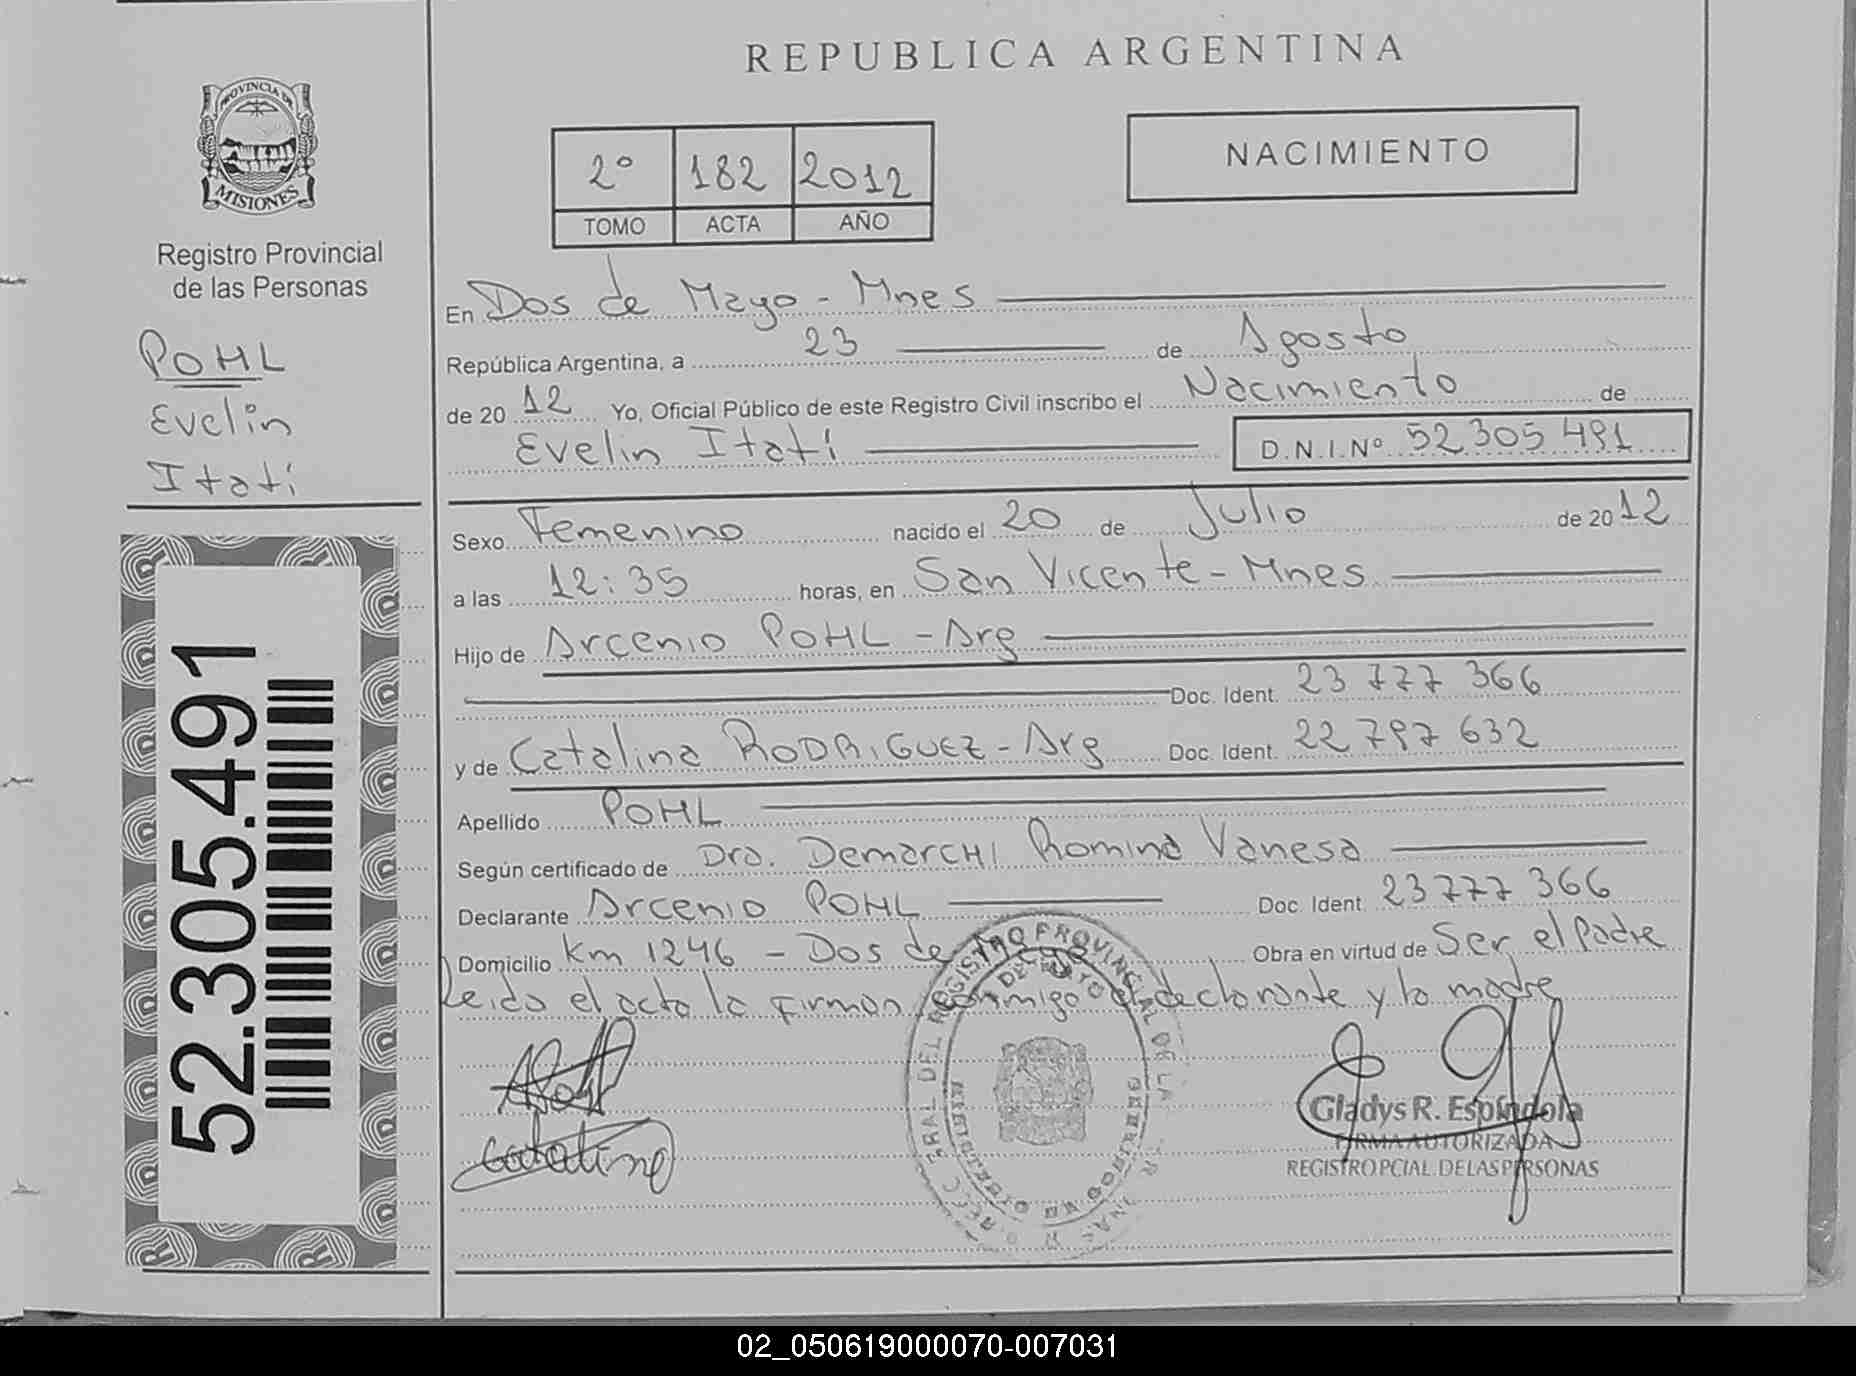 REPUBLICA ARGENTINA
PROVINCIA DE
MISIONES
Registro Provincial
de las Personas
POHL
Evelin
Itatí
52.305.491
2° 182 2012
TOMO ACTA AÑO
NACIMIENTO
En Dos de Mayo - Mnes
República Argentina, a 23 de Agosto
de 20 12 Yo, Oficial Público de este Registro Civil inscribo el Nacimiento de
Evelin Itatí D.N.I.Nº 52 305 491
Sexo Femenino nacido el 20 de Julio de 20 12
a las 12:35 horas, en San Vicente - Mnes
Hijo de Arcenio POHL - Arg
Doc. Ident. 23 777 366
y de Catalina RODRIGUEZ - Arg Doc. Ident. 22 797 632
Apellido POHL
Según certificado de Dra. Demarchi Romina Vanesa
Declarante Arcenio POHL Doc. Ident. 23 777 366
Domicilio Km 1246 - Dos de Mayo Obra en virtud de Ser el Padre
Leida el acta la firman conmigo el declarante y la madre
Catalina
Gladys R. Espíndola
FIRMA AUTORIZADA
REGISTRO PCIAL. DE LAS PERSONAS
02_050619000070-007031